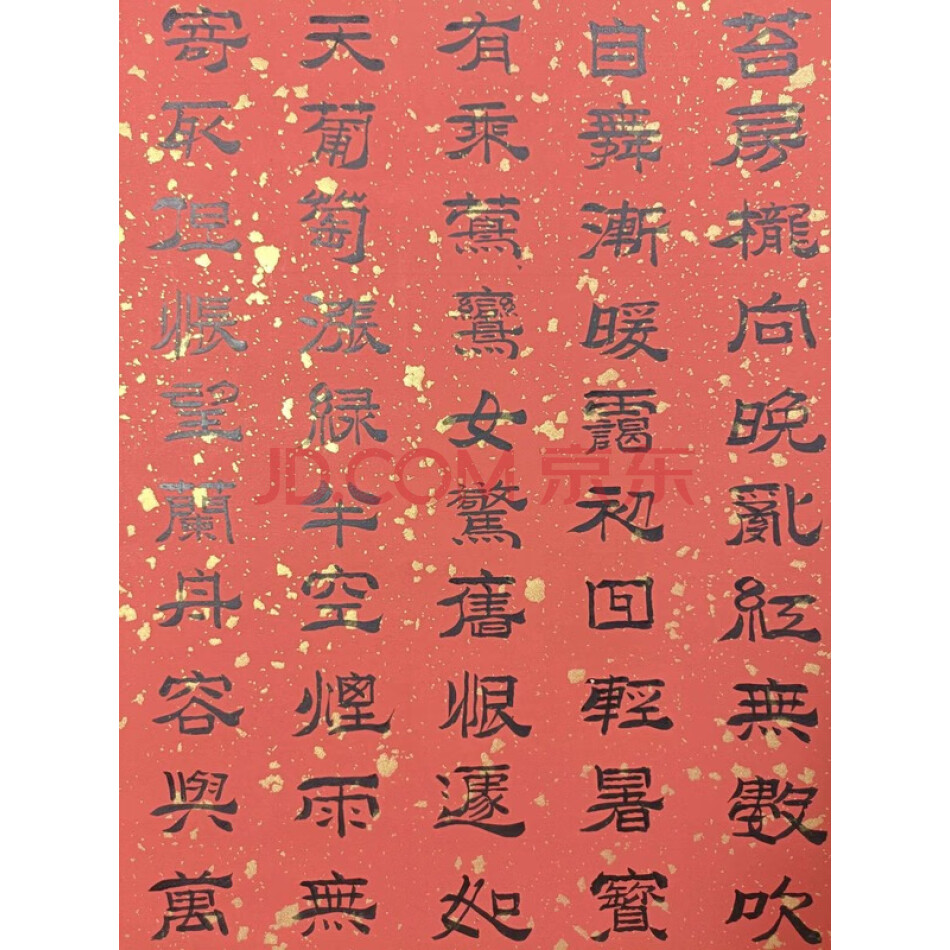 苔房櫳向晚亂紅無數吹
自舞漸暖靄初回輕暑寶
有乘鸞女驚舊恨遽如
天葡萄漲綠半空煙雨無
寄取但悵望蘭舟容與萬
JD.COM 京东